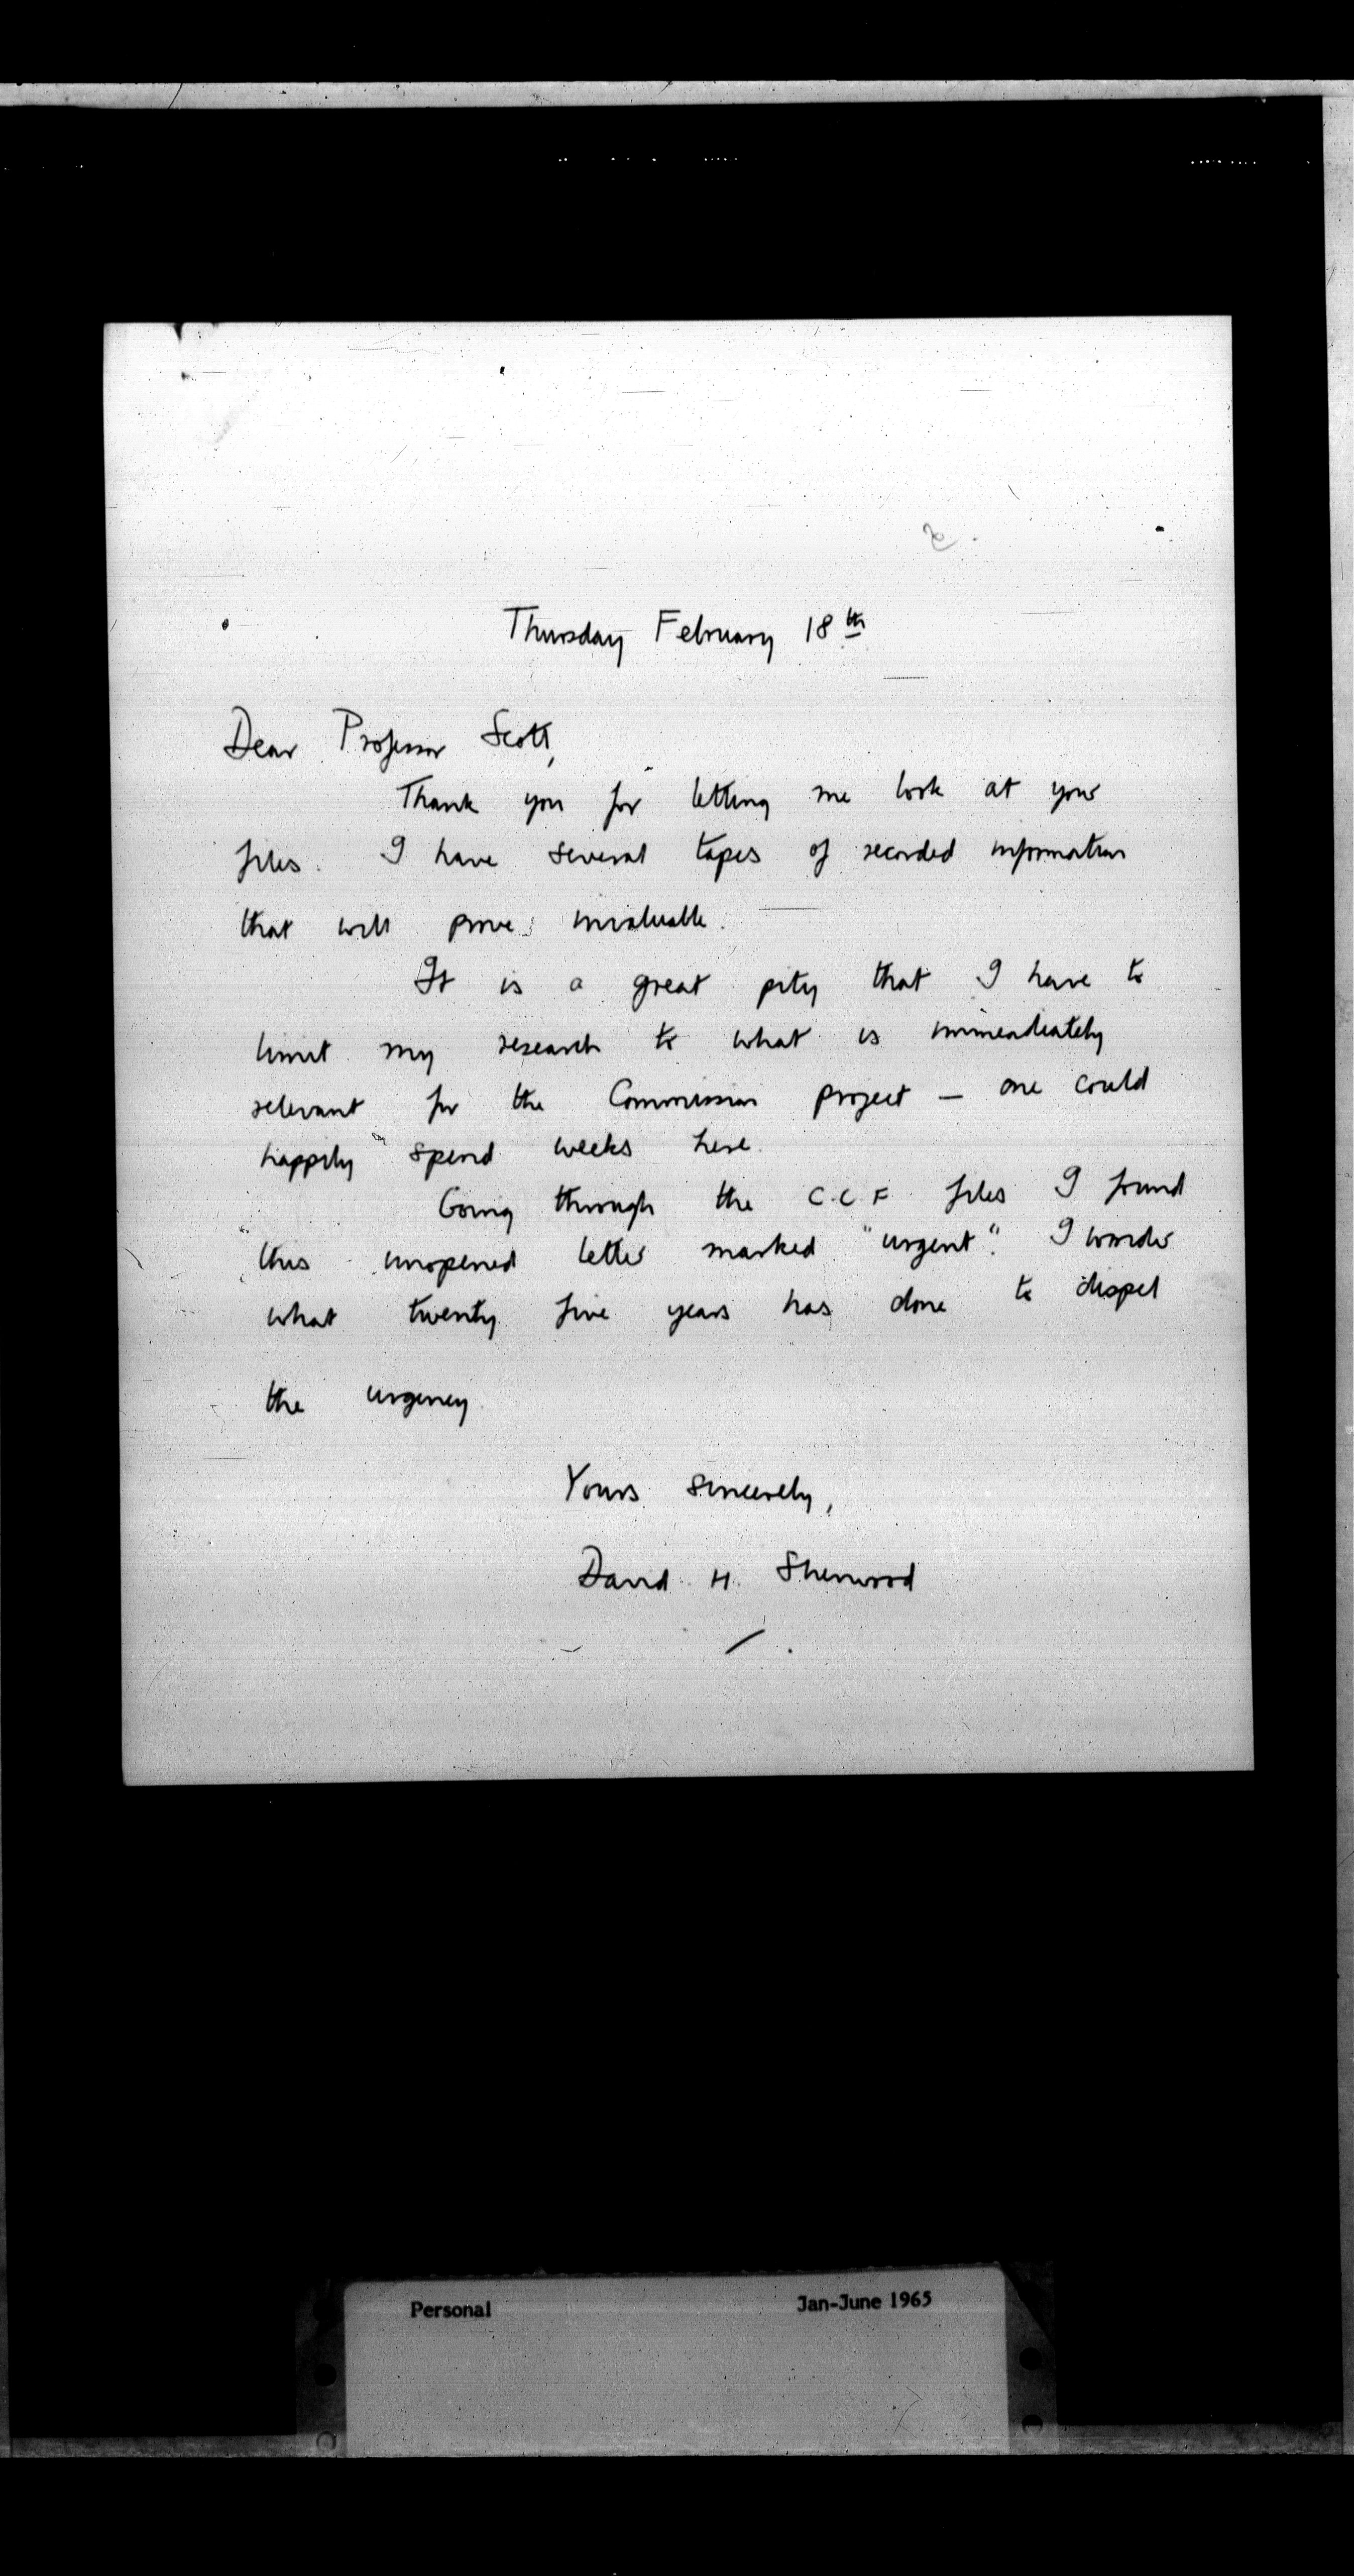 Thursday February 18th
Dear Professor Scott,
Thank you for letting me look at your
files. I have several tapes of recorded information
that will prove invaluable.
It is a great pity that I have to
limit my research to what is immediately
relevant for the Commission project — one could
happily spend weeks here.
Going through the C.C.F files I found
this unopened letter marked "urgent". I wonder
what twenty five years has done to dispel
the urgency
Yours sincerely,
David H. Sherwood
Personal Jan-June 1965